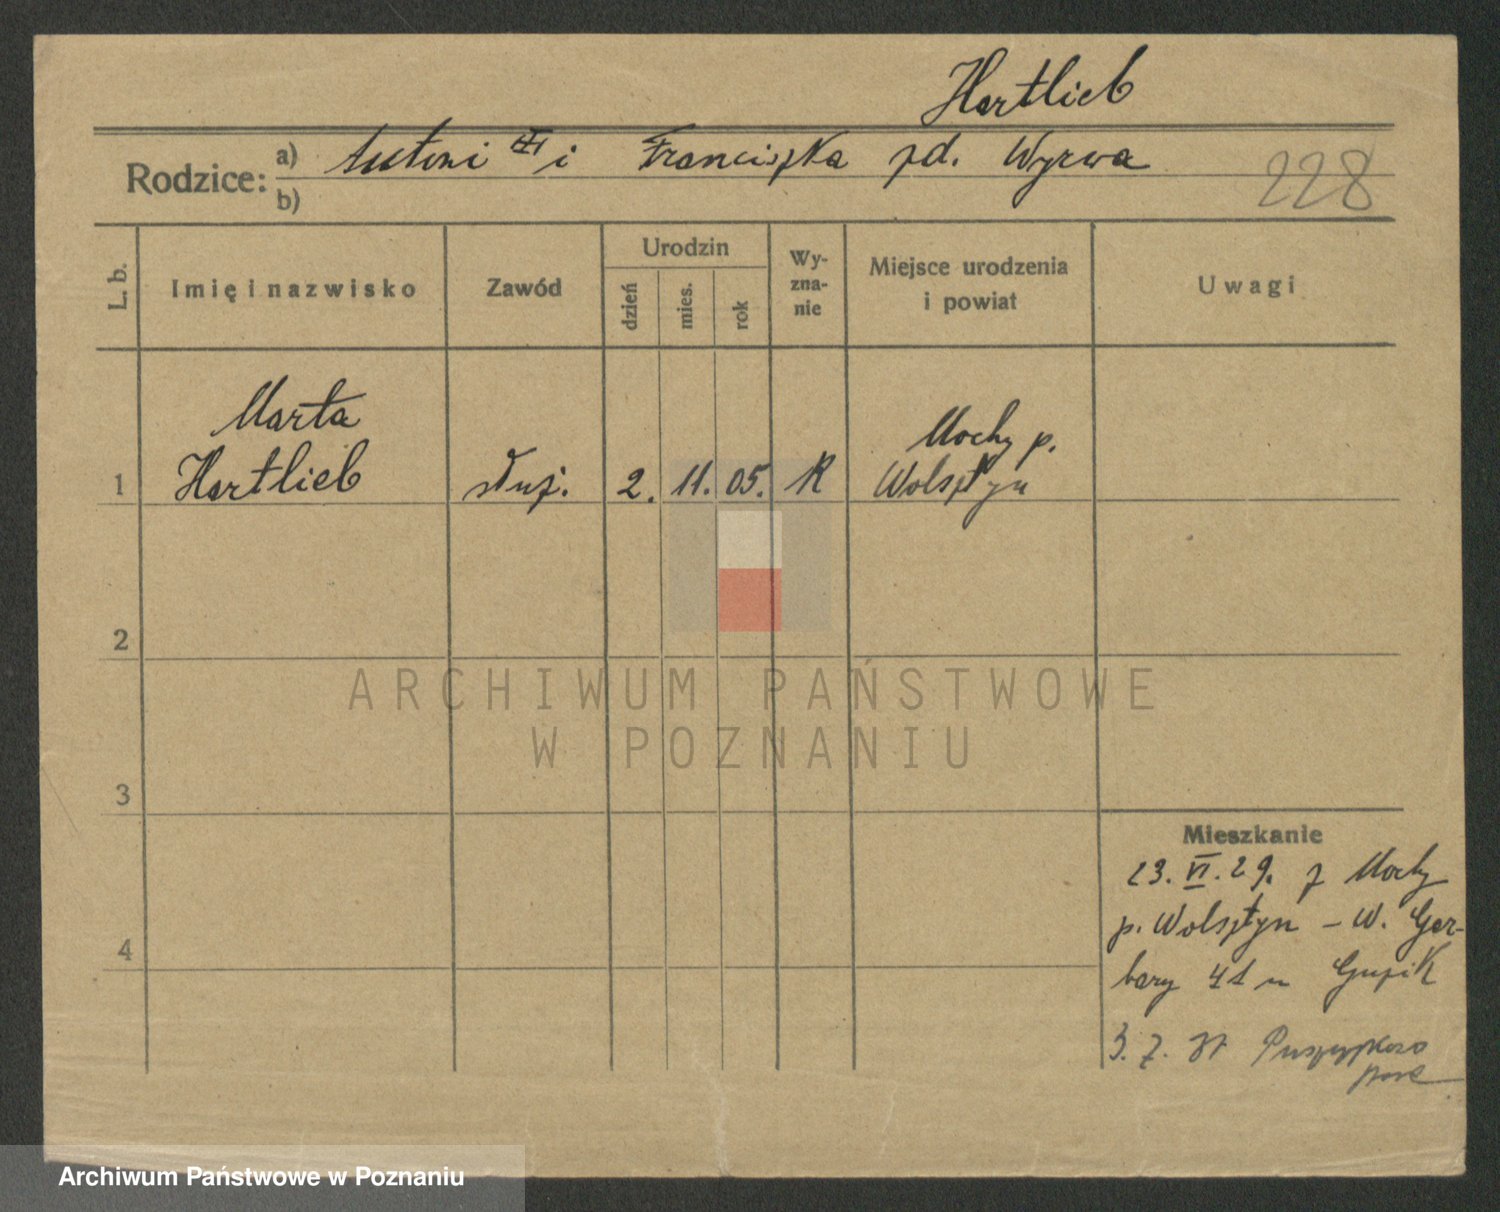 Hartlieb
Rodzice: a) Antoni i Franciszka zd. Wyrwa
b)
228
L. b.
Imię i nazwisko
Zawód
Urodzin
dzień
mies.
rok
Wy-
zna-
nie
Miejsce urodzenia
i powiat
Uwagi
Marta
Mochy p.
1 Hartlieb służ. 2. 11. 05. R Wolsztyn
2
ARCHIWUM PAŃSTWOWE
W POZNANIU
3
4
Mieszkanie
23. VI. 29. z Mochy
p. Wolsztyn – W. Gar-
bary 41 u Guzik
3. 7. 31
Archiwum Państwowe w Poznaniu